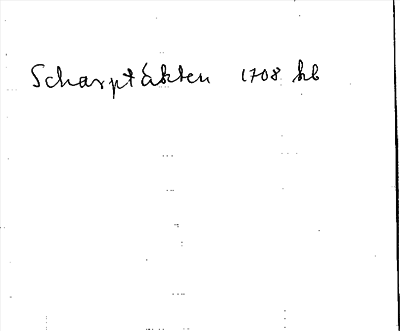 Scharptäkten 1708 hb